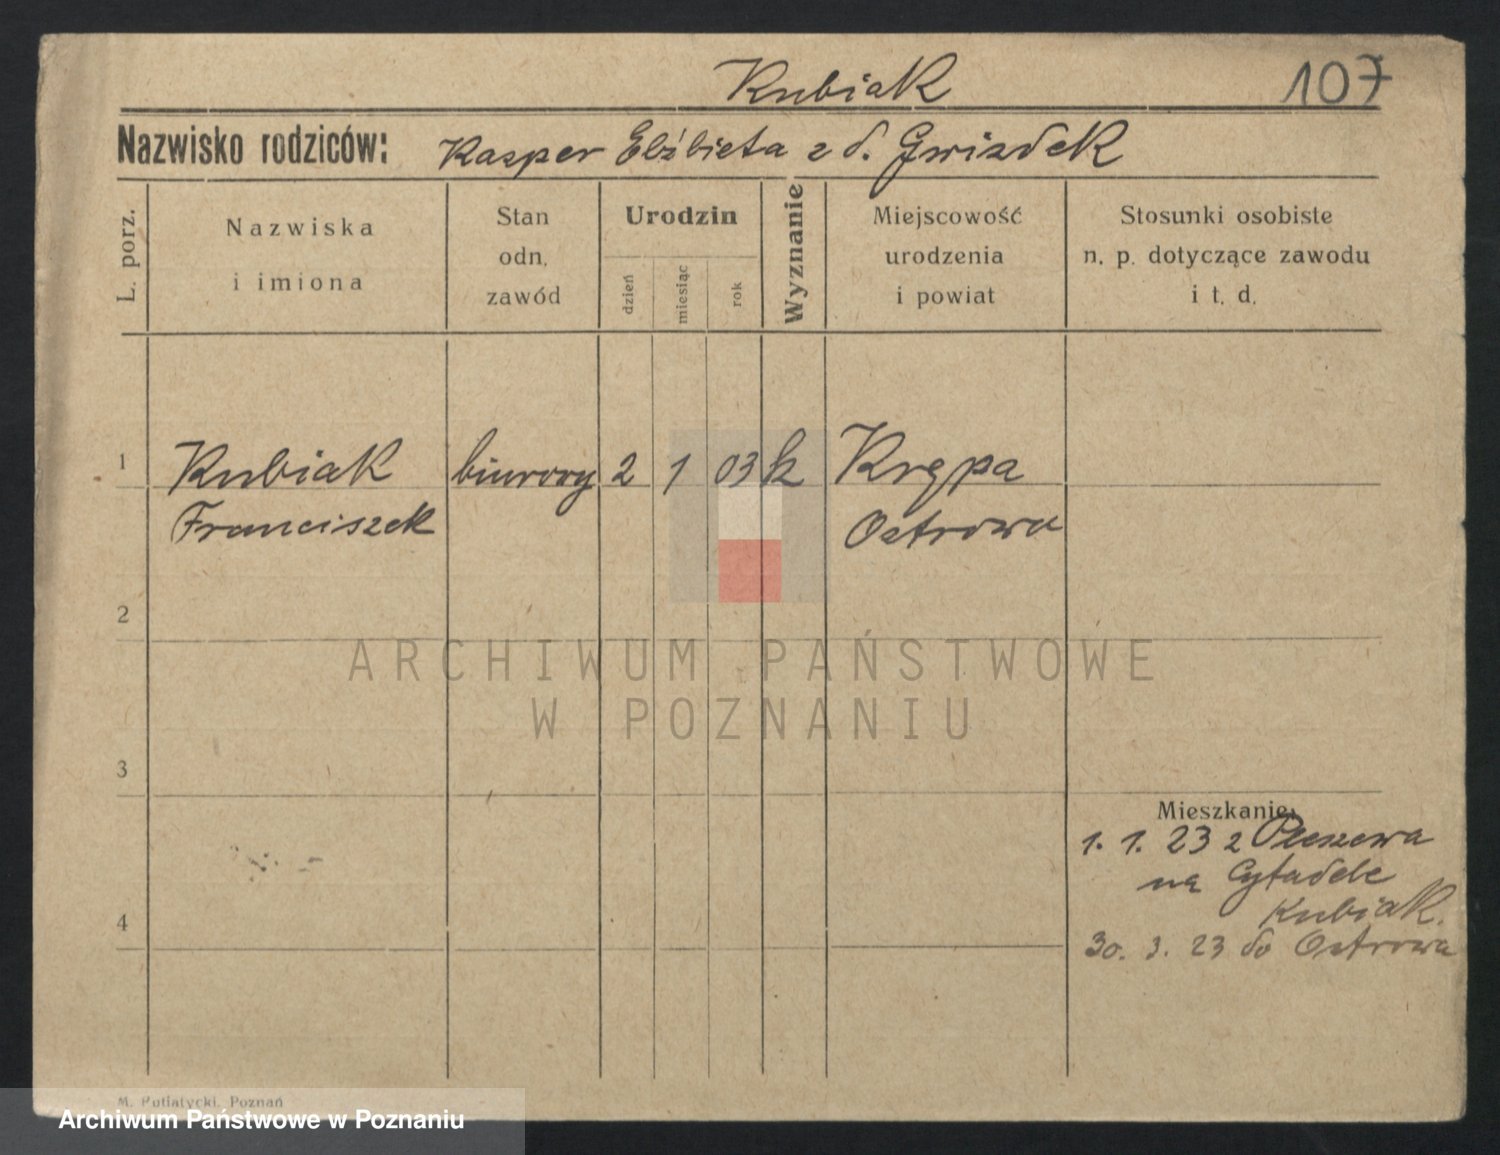 Kubiak
107
Nazwisko rodziców: Kasper Elżbieta z d. Gwizdek
L. porz.
Nazwiska
i imiona
Stan
odn.
zawód
Urodzin
dzień
miesiąc
rok
Wyznanie
Miejscowość
urodzenia
i powiat
Stosunki osobiste
n. p. dotyczące zawodu
i t. d.
1 Kubiak biurowy 2 1 03 k Krępa
Franciszek Ostrowa
2
ARCHIWUM PAŃSTWOWE
W POZNANIU
3
Mieszkanie:
1. 1. 23 z Pleszewa
na Cytadele
Kubiak.
4
30. 3. 23 do Ostrowa
M. Putiatycki, Poznań
Archiwum Państwowe w Poznaniu